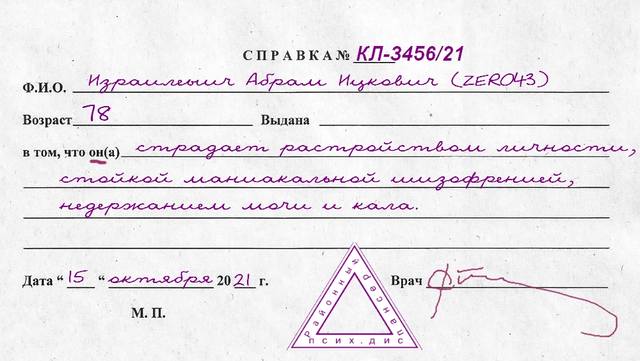 СПРАВКА № КЛ-3456/21
Ф.И.О. Израилевич Абрам Ицкович (ZERO43)
Возраст 78 Выдана
в том, что он(а) страдает растройством личности,
стойкой маниакальной шизофренией,
недержанием мочи и кала.
Дата “ 15 “ октября 20 21 г. Врач
М. П.
районный псих.диспансер